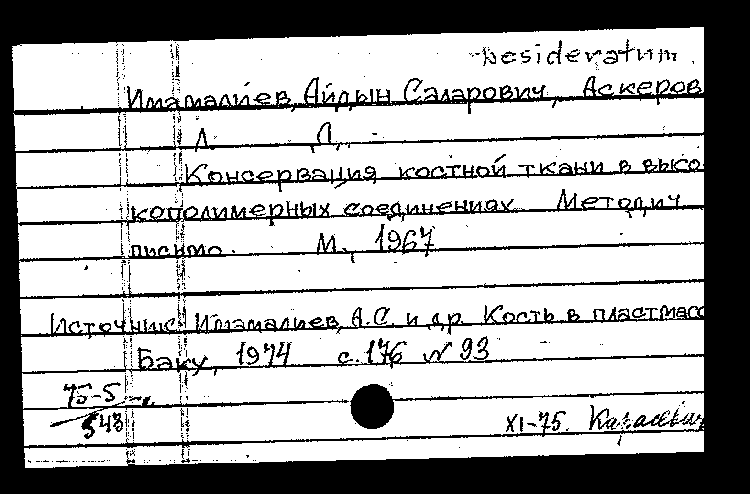 Desideratum.
Имамалиев, Айдын Саларович, Аскеров
Л. Д.
Консервация костной ткани в высо-
кополимерных соединениях Методич.
письмо. М., 1967
Источник: Имамалиев, А.С. и др. Кость в пластмасс
Баку, 1974 с. 176 № 93
75-5
543
XI-75. Карасевич